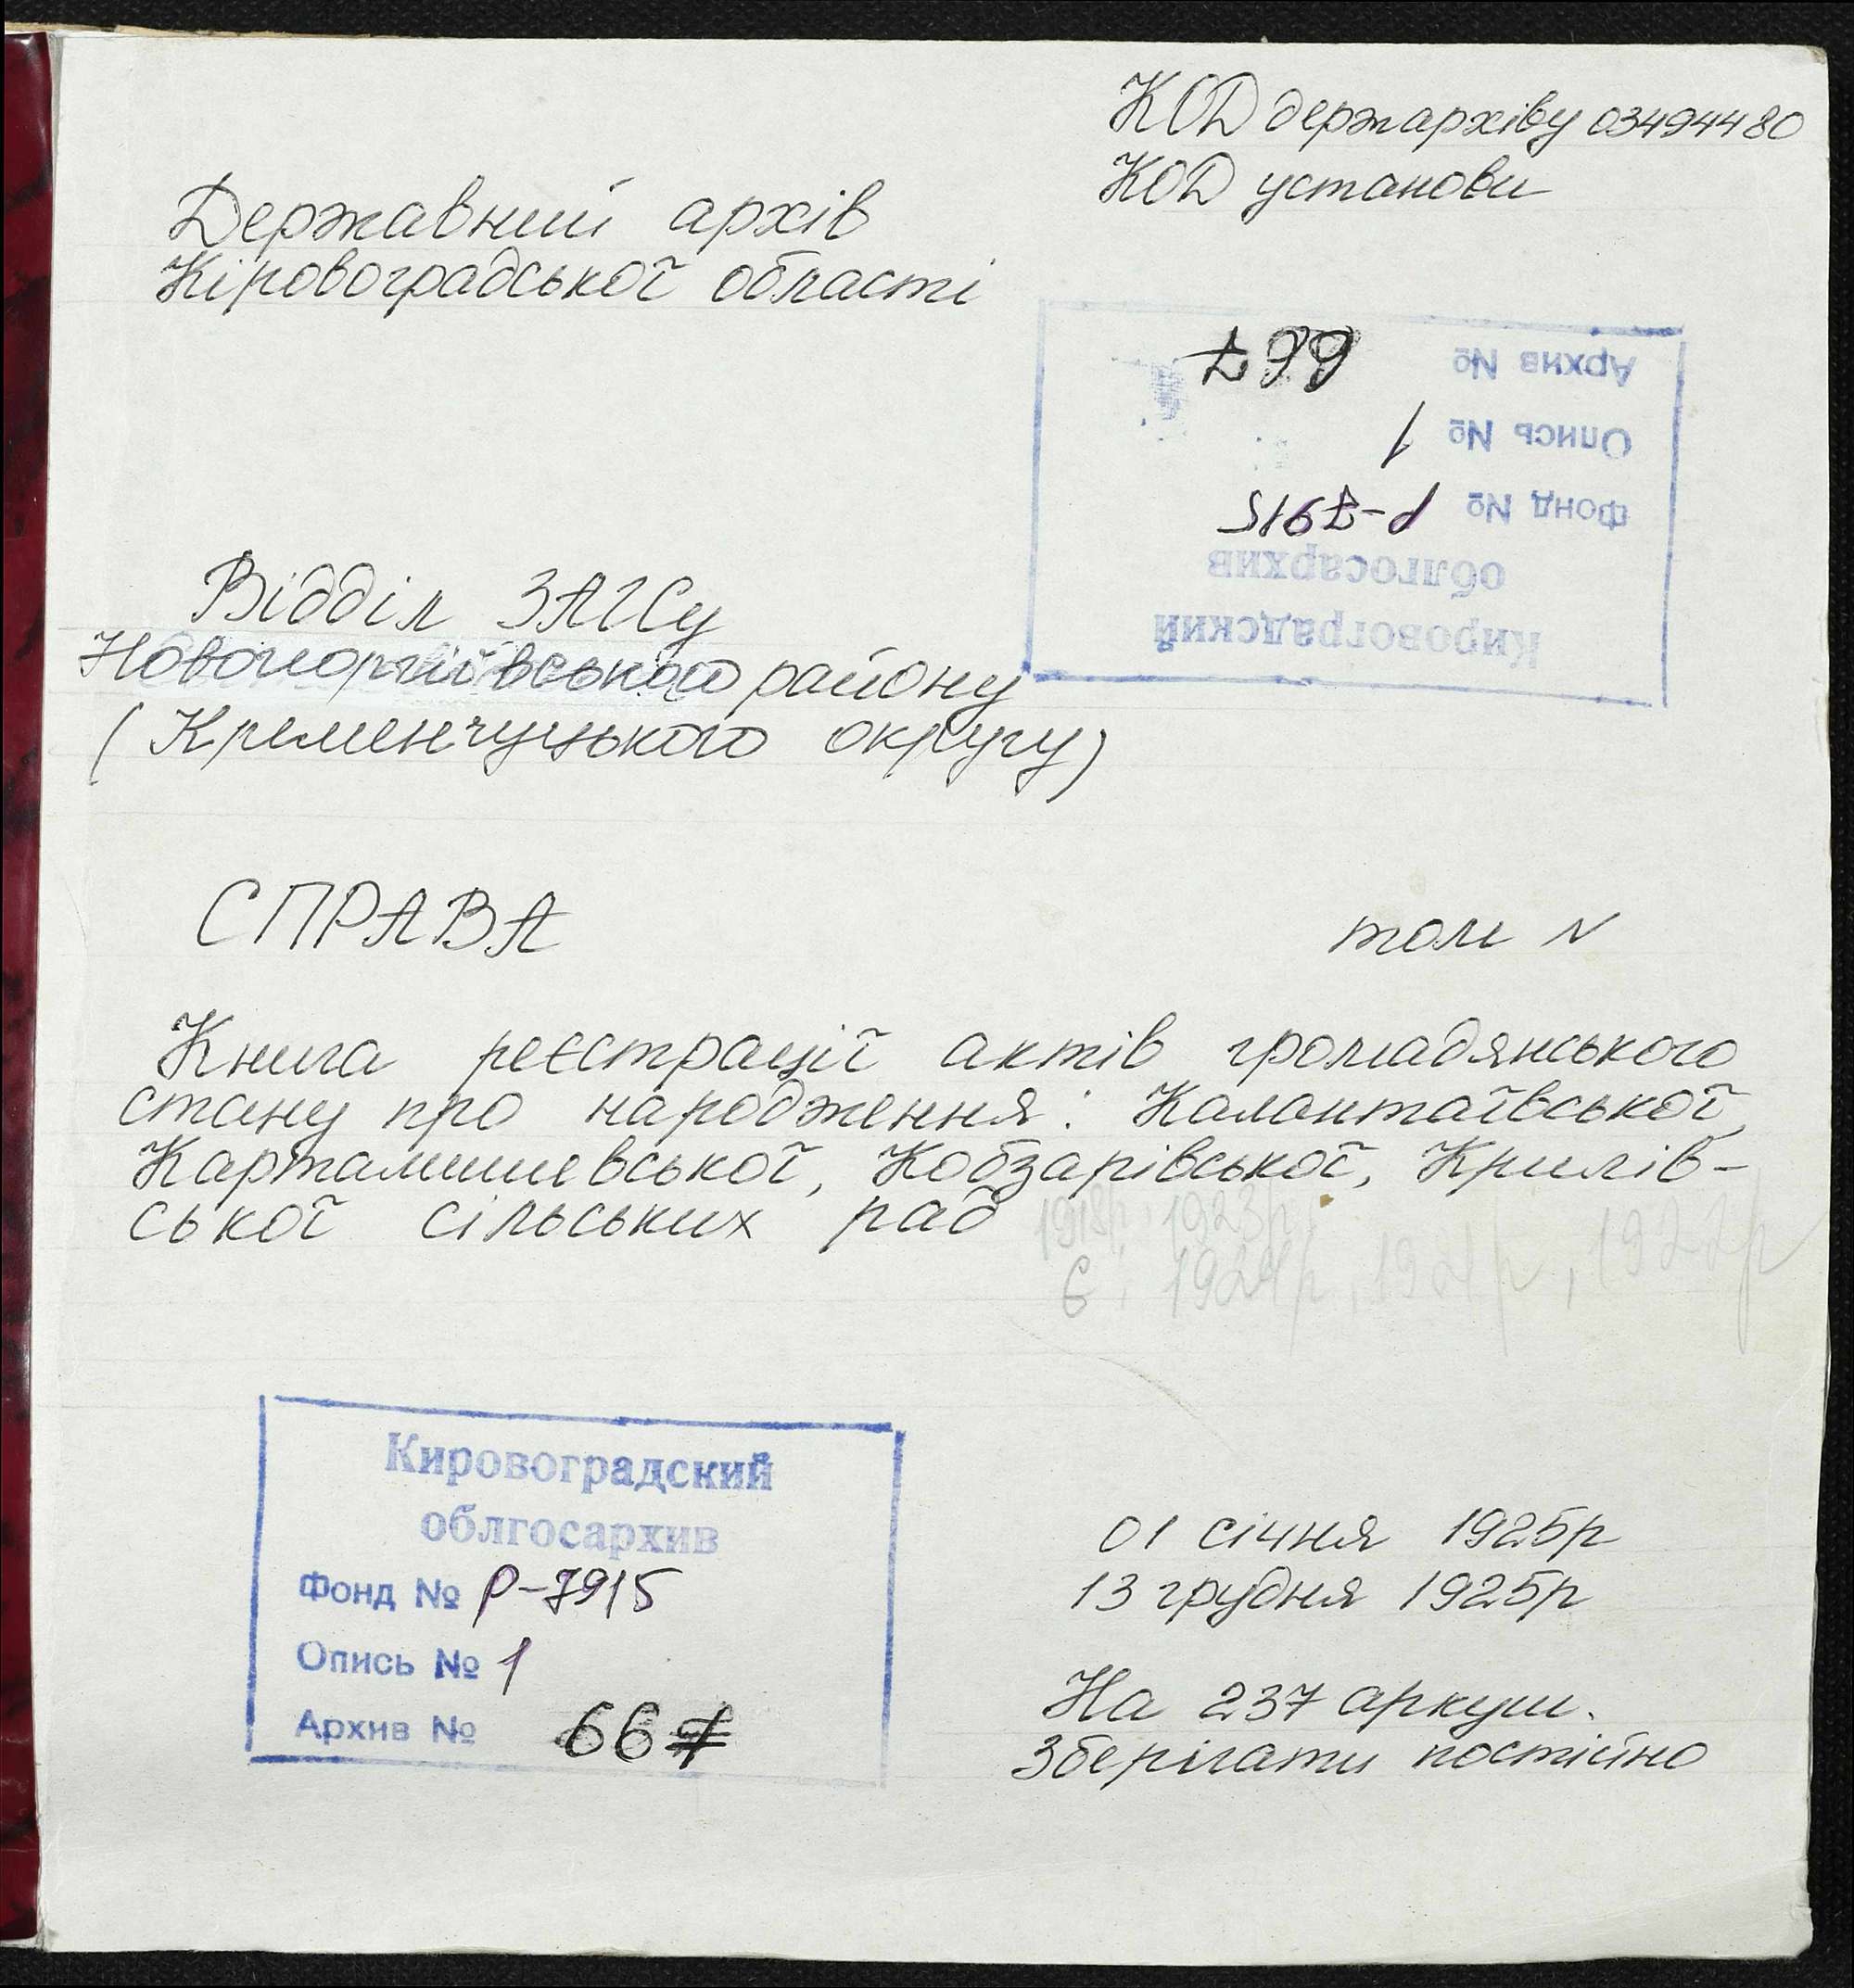 КОД держархіву 03494480
КОД установи
Державний архів
Кіровоградської області
Кировоградский
облгосархив
Фонд № Р-7915
Опись № 1
Архив № 667
Відділ ЗАГСу
Новогеоргіївського району
(Кременчуцького округу)
СПРАВА
том N
Книга реєстрації актів громадянського
стану про народження: Калантаївської,
Картамишевської, Кобзарівської, Крилів-
ської сільських рад
1918р, 1923р,
Є: 1924р, 1921р, 1922р
Кировоградский
облгосархив
Фонд № Р-7915
Опись № 1
Архив № 667
01 січня 1925р
13 грудня 1925р
На 237 аркуш.
Зберігати постійно